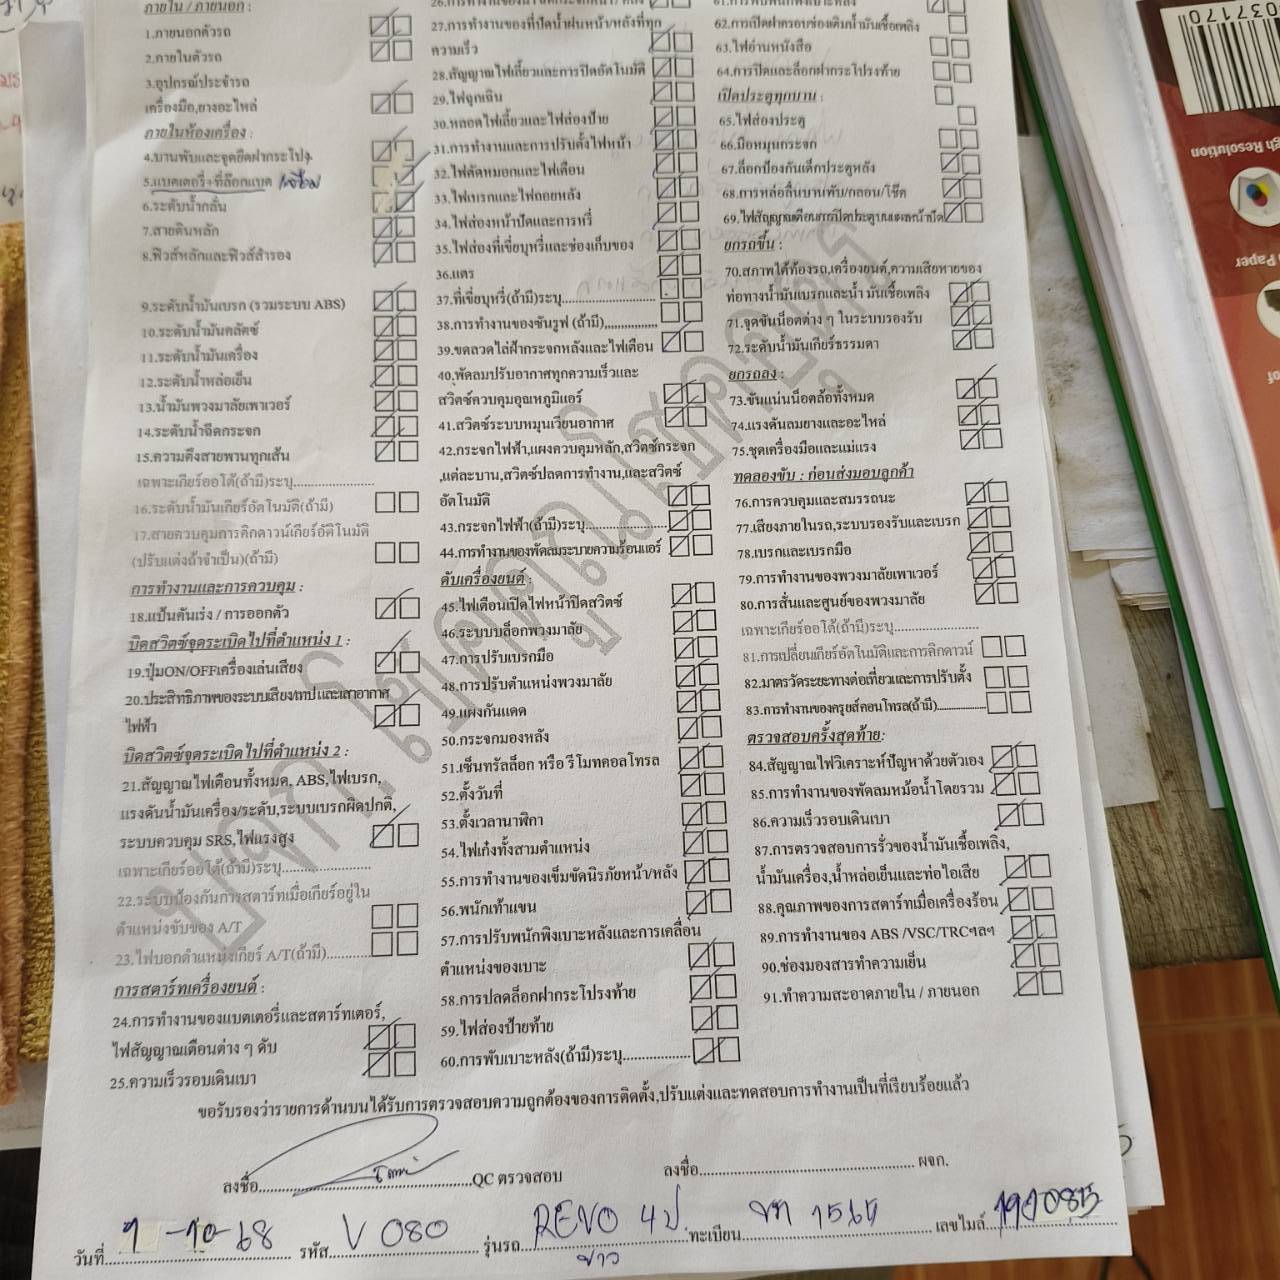 ภายใน / ภายนอก :
1.ภายนอกตัวรถ
2.ภายในตัวรถ
3.อุปกรณ์ประจำรถ
เครื่องมือ,ยางอะไหล่
ภายในห้องเครื่อง :
4.บานพับและจุดยึดฝากระโปรง
5.แบตเตอรี่+ที่ล๊อกแบต
6.ระดับน้ำกลั่น
7.สายดินหลัก
8.ฟิวส์หลักและฟิวส์สำรอง
9.ระดับน้ำมันเบรก (รวมระบบ ABS)
10.ระดับน้ำมันคลัตซ์
11.ระดับน้ำมันเครื่อง
12.ระดับน้ำหล่อเย็น
13.น้ำมันพวงมาลัยเพาเวอร์
14.ระดับน้ำฉีดกระจก
15.ความตึงสายพานทุกเส้น
เฉพาะเกียร์ออโต้(ถ้ามี)ระบุ........................
16.ระดับน้ำมันเกียร์อัตโนมัติ(ถ้ามี)
17.สายควบคุมการคิกดาวน์เกียร์อัติโนมัติ
(ปรับแต่งถ้าจำเป็น)(ถ้ามี)
การทำงานและการควบคุม :
18.แป้นคันเร่ง / การออกตัว
บิดสวิตซ์จุดระเบิดไปที่ตำแหน่ง 1 :
19.ปุ่มON/OFFเครื่องเล่นเสียง
20.ประสิทธิภาพของระบบเสียง/เทป และเสาอากาศ
ไฟฟ้า
บิดสวิตซ์จุดระเบิดไปที่ตำแหน่ง 2 :
21.สัญญาณไฟเตือนทั้งหมด, ABS,ไฟเบรก,
แรงดันน้ำมันเครื่อง/ระดับ,ระบบเบรกผิดปกติ,
ระบบควบคุม SRS,ไฟแรงสูง
เฉพาะเกียร์ออโต้(ถ้ามี)ระบุ.........................
22.ระบบป้องกันการสตาร์ทเมื่อเกียร์อยู่ใน
ตำแหน่งขับของ A/T
23.ไฟบอกตำแหน่งเกียร์ A/T(ถ้ามี)............
การสตาร์ทเครื่องยนต์ :
24.การทำงานของแบตเตอรี่และสตาร์ทเตอร์,
ไฟสัญญาณเตือนต่าง ๆ ดับ
25.ความเร็วรอบเดินเบา
27.การทำงานของที่ปัดน้ำฝนหน้า/หลังที่ทุก
ความเร็ว
28.สัญญาณไฟเลี้ยวและการปิดอัตโนมัติ
29.ไฟฉุกเฉิน
30.หลอดไฟเลี้ยวและไฟส่องป้าย
31.การทำงานและการปรับตั้งไฟหน้า
32.ไฟตัดหมอกและไฟเตือน
33.ไฟเบรกและไฟถอยหลัง
34.ไฟส่องหน้าปัดและการหรี่
35.ไฟส่องที่เขี่ยบุหรี่และช่องเก็บของ
36.แตร
37.ที่เขี่ยบุหรี่(ถ้ามี)ระบุ........................
38.การทำงานของซันรูฟ (ถ้ามี)...............
39.ขดลวดไล่ฝ้ากระจกหลังและไฟเตือน
40.พัดลมปรับอากาศทุกความเร็วและ
สวิตซ์ควบคุมอุณหภูมิแอร์
41.สวิตซ์ระบบหมุนเวียนอากาศ
42.กระจกไฟฟ้า,แผงควบคุมหลัก,สวิตซ์กระจก
,แต่ละบาน,สวิตซ์ปลดการทำงาน,และสวิตซ์
อัตโนมัติ
43.กระจกไฟฟ้า(ถ้ามี)ระบุ.....................
44.การทำงานของพัดลมระบายความร้อนแอร์
ดับเครื่องยนต์ :
45.ไฟเตือนเปิดไฟหน้าปิดสวิตซ์
46.ระบบบล็อกพวงมาลัย
47.การปรับเบรกมือ
48.การปรับตำแหน่งพวงมาลัย
49.แผงกันแดด
50.กระจกมองหลัง
51.เซ็นทรัลล็อก หรือ รีโมทคอลโทรล
52.ตั้งวันที่
53.ตั้งเวลานาฬิกา
54.ไฟเก๋งทั้งสามตำแหน่ง
55.การทำงานของเข็มขัดนิรภัยหน้า/หลัง
56.พนักเท้าแขน
57.การปรับพนักพิงเบาะหลังและการเคลื่อน
ตำแหน่งของเบาะ
58.การปลดล็อกฝากระโปรงท้าย
59.ไฟส่องป้ายท้าย
60.การพับเบาะหลัง(ถ้ามี)ระบุ..................
62.การเปิดฝาครอบช่องเติมน้ำมันเชื้อเพลิง
63.ไฟอ่านหนังสือ
64.การปิดและล็อกฝากระโปรงท้าย
เปิดประตูทุกบาน :
65.ไฟส่องประตู
66.มือหมุนกระจก
67.ล็อกป้องกันเด็กประตูหลัง
68.การหล่อลื่นบานพับ/กลอน/โช๊ค
69.ไฟสัญญาณเตือนการปิดประตูบนแผงหน้าปัด
ยกรถขึ้น :
70.สภาพใต้ท้องรถ,เครื่องยนต์,ความเสียหายของ
ท่อทางน้ำมันเบรกและน้ำมันเชื้อเพลิง
71.จุดขันน็อตต่าง ๆ ในระบบรองรับ
72.ระดับน้ำมันเกียร์ธรรมดา
ยกรถลง :
73.ขันแน่นน็อตล้อทั้งหมด
74.แรงดันลมยางและอะไหล่
75.ชุดเครื่องมือและแม่แรง
ทดลองขับ : ก่อนส่งมอบลูกค้า
76.การควบคุมและสมรรถนะ
77.เสียงภายในรถ,ระบบรองรับและเบรก
78.เบรกและเบรกมือ
79.การทำงานของพวงมาลัยเพาเวอร์
80.การสั่นและศูนย์ของพวงมาลัย
เฉพาะเกียร์ออโต้(ถ้ามี)ระบุ.........................
81.การเปลี่ยนเกียร์อัตโนมัติและการคิกดาวน์
82.มาตรวัดระยะทางต่อเที่ยวและการปรับตั้ง
83.การทำงานของครูยส์คอนโทรล(ถ้ามี)...............
ตรวจสอบครั้งสุดท้าย:
84.สัญญาณไฟวิเคราะห์ปัญหาด้วยตัวเอง
85.การทำงานของพัดลมหม้อน้ำโดยรวม
86.ความเร็วรอบเดินเบา
87.การตรวจสอบการรั่วของน้ำมันเชื้อเพลิง,
น้ำมันเครื่อง,น้ำหล่อเย็นและท่อไอเสีย
88.คุณภาพของการสตาร์ทเมื่อเครื่องร้อน
89.การทำงานของ ABS /VSC/TRCฯลฯ
90.ช่องมองสารทำความเย็น
91.ทำความสะอาดภายใน / ภายนอก
ขอรับรองว่ารายการด้านบนได้รับการตรวจสอบความถูกต้องของการติดตั้ง,ปรับแต่งและทดสอบการทำงานเป็นที่เรียบร้อยแล้ว
ลงชื่อ.............................QC ตรวจสอบ ลงชื่อ............................. ผจก.
วันที่ 1-10-68 รหัส V 080 รุ่นรถ REVO 4ป. ทะเบียน 1565 เลขไมล์
ขาว
037170
gh Resolution
Paper
of